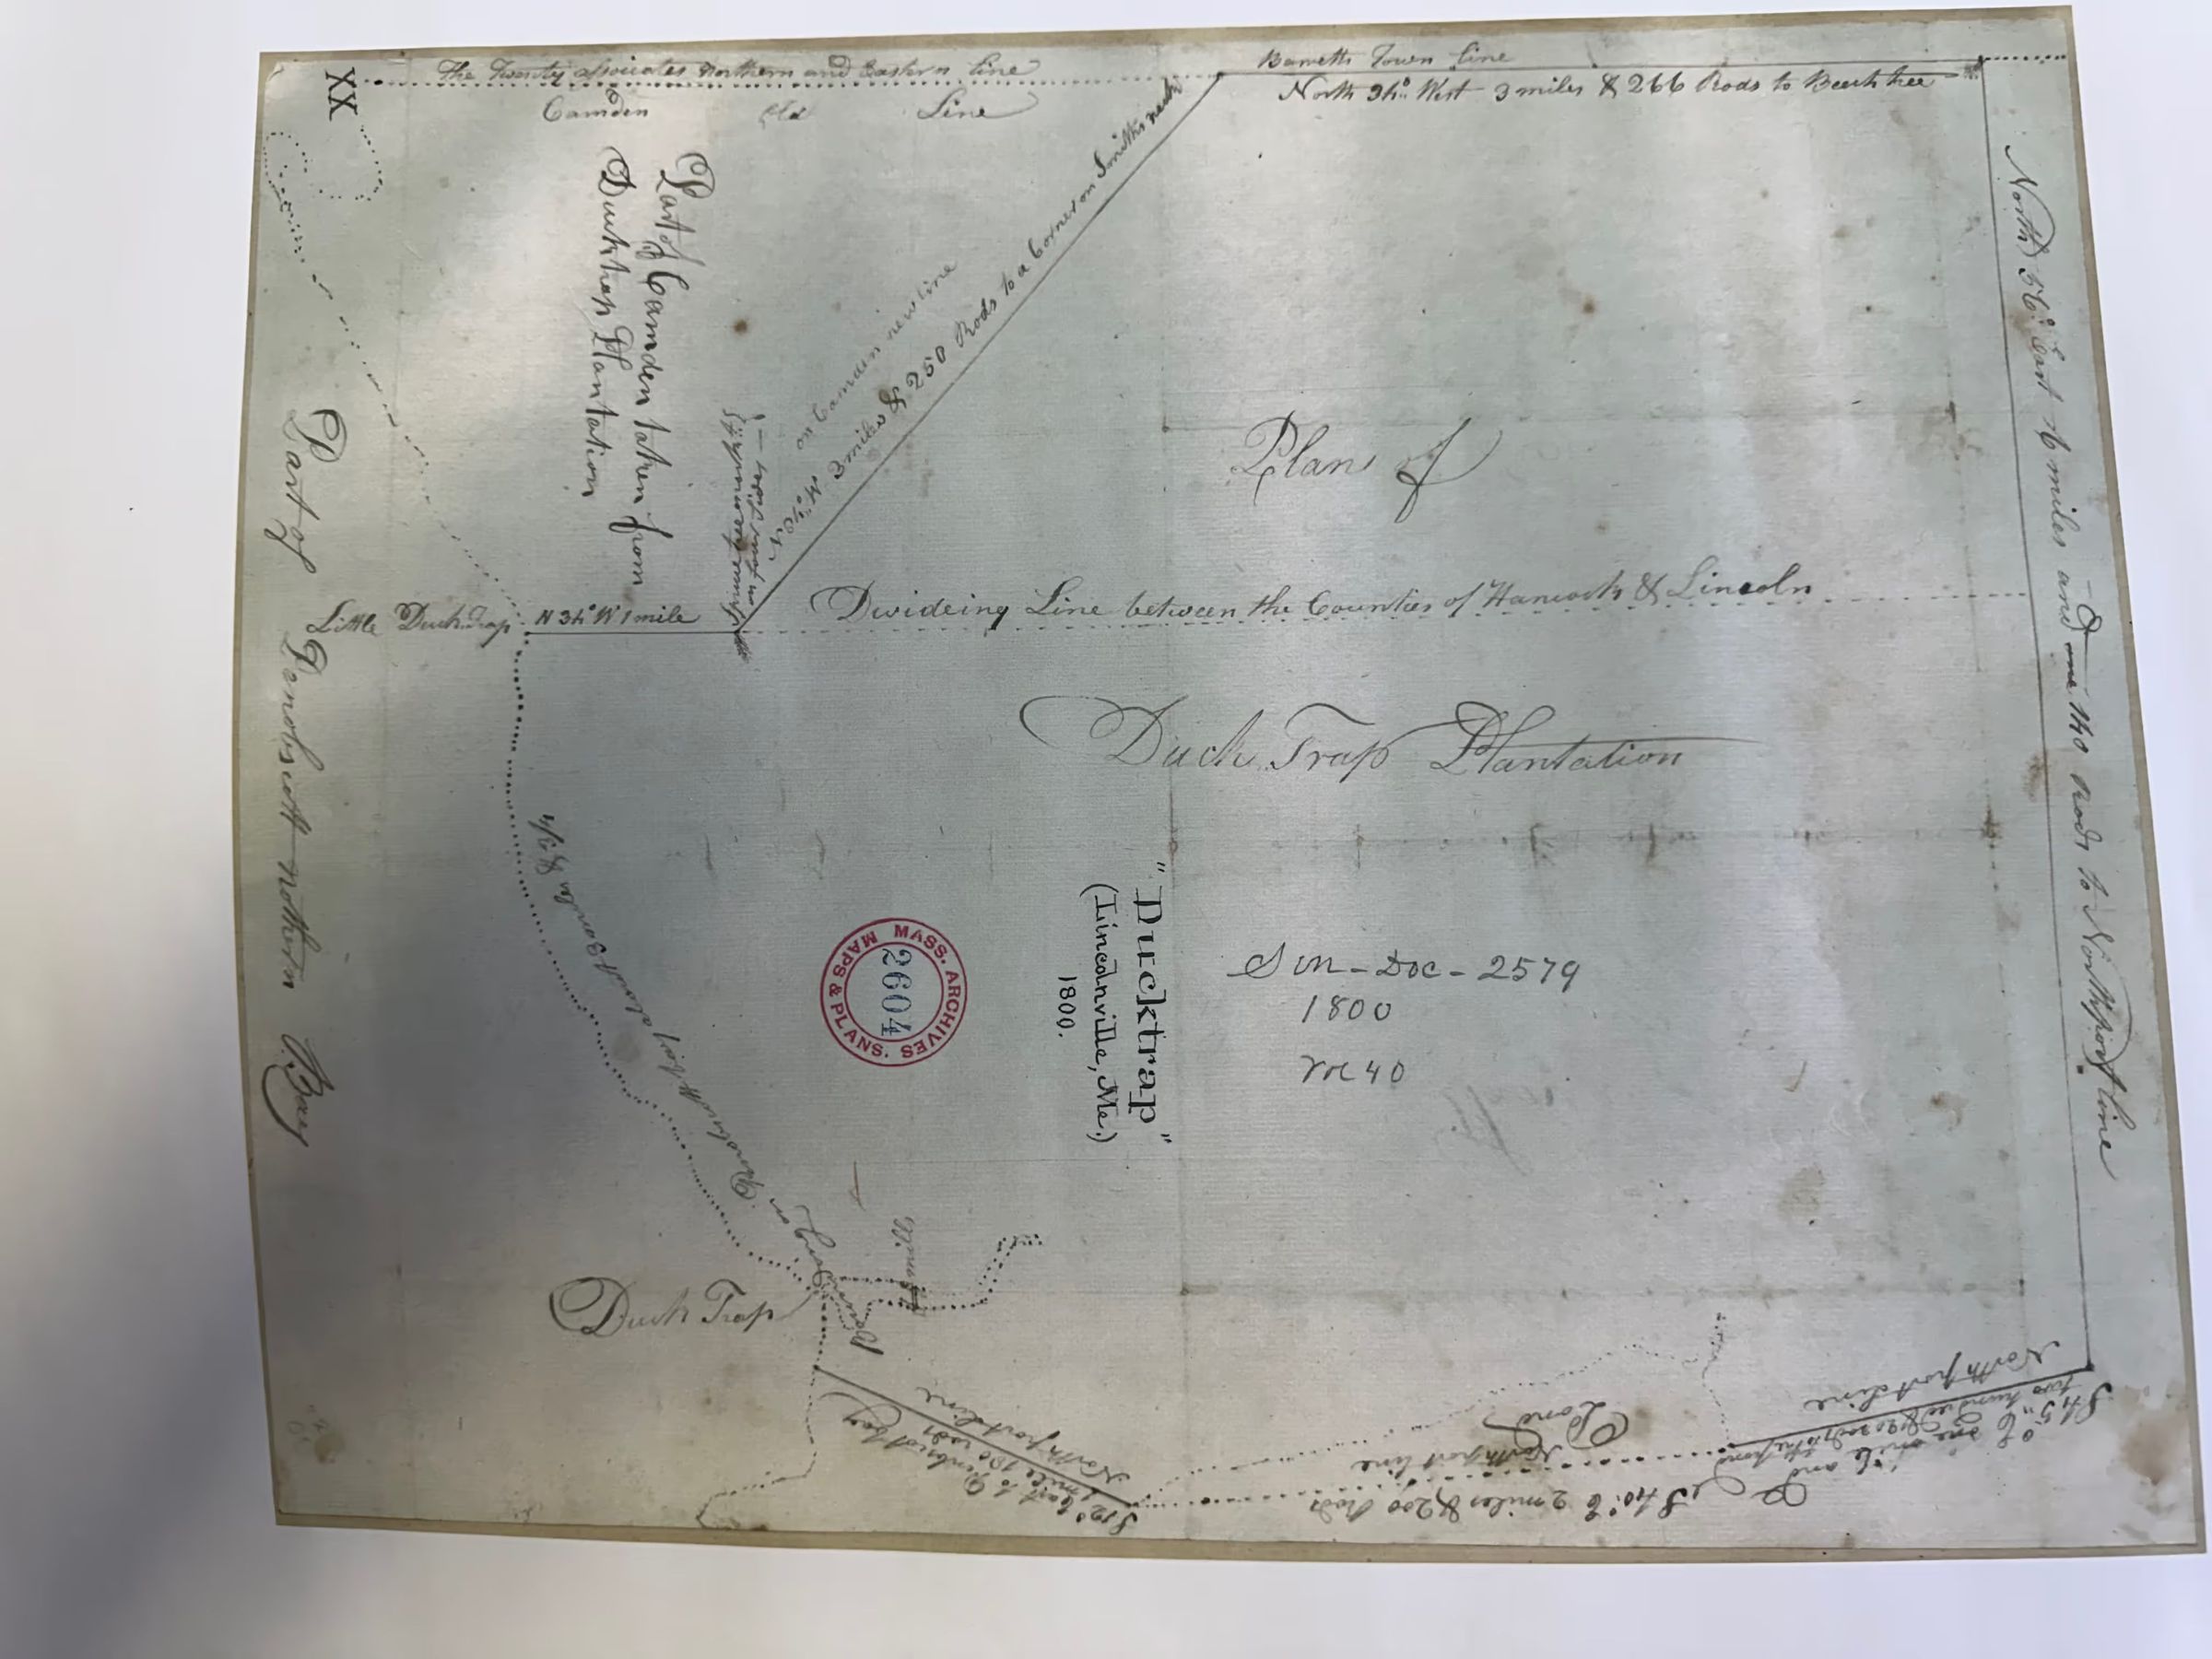 XX
The Twenty associates northern and Eastern line
Camden Old Line
Barretts Town Line
North 34° West 3 miles & 266 Rods to Beech tree
North 56° East 4 miles and 140 rods to Northport line
Part of Camden taken from
Ducktrap Plantation
on Camden new line
3 miles & 250 Rods to a Corner on Smiths neck
Plan of
Little Ducktrap
N 34° W 1 mile
Divideing Line between the Counties of Hancock & Lincoln
Duck Trap Plantation
Part of Penobscott nothern Bay
on Penobscott bay about 3 miles & 3/4
"Ducktrap"
(Lincolnville, Me.)
1800.
MASS. ARCHIVES
MAPS & PLANS.
2604
Sm-Doc-2579
1800
m 40
Duck Trap
S 12° East to Penobscot bay
1 mile 100 rods
Northport line
Pond
Northport line
S 40° E 2 miles & 200 Rods
Northport Line